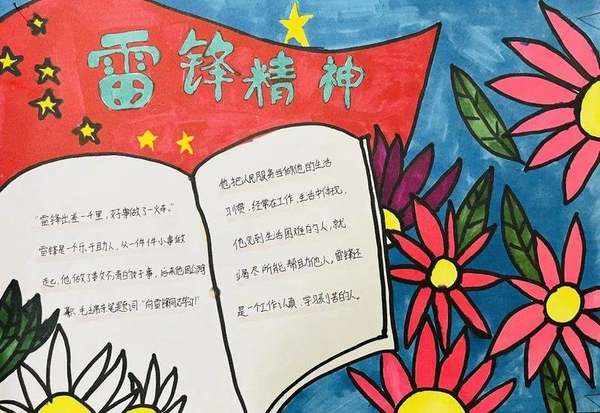 雷锋精神
"雷锋出差一千里,好事做了一火车。"
雷锋是一个乐于助人,从一件件小事做
起,他做了数不清的好事,后来他因公殉
毛主席亲笔题词"向雷锋同志学习!"
他把人民服务当做他的生活
习惯,经常在工作、生活中体现,
他见到生活困难的人,就
竭尽所能,帮助他人。雷锋还
是一个工作认真,学习刻苦的人。